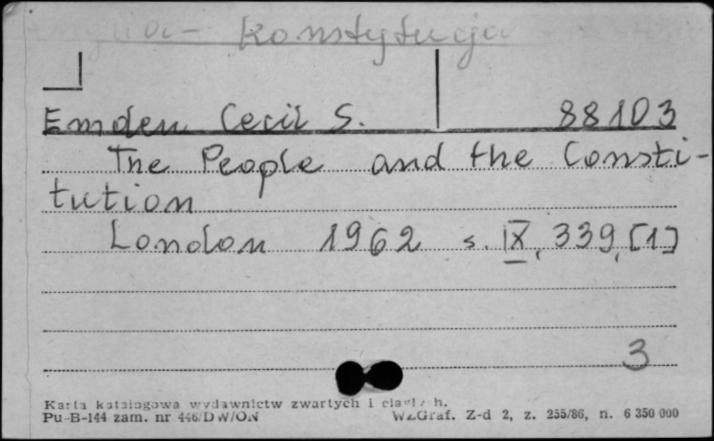 Anglia - Konstytucja
Emden Cecil S. 88103
The People and the Consti-
tution
London 1962 s. IX, 339, [1]
3
Karta katalogowa wydawnictw zwartych i ciągłych.
Pu-B-144 zam. nr 446/DW/ON WZGraf. Z-d 2, z. 255/86, n. 6 350 000